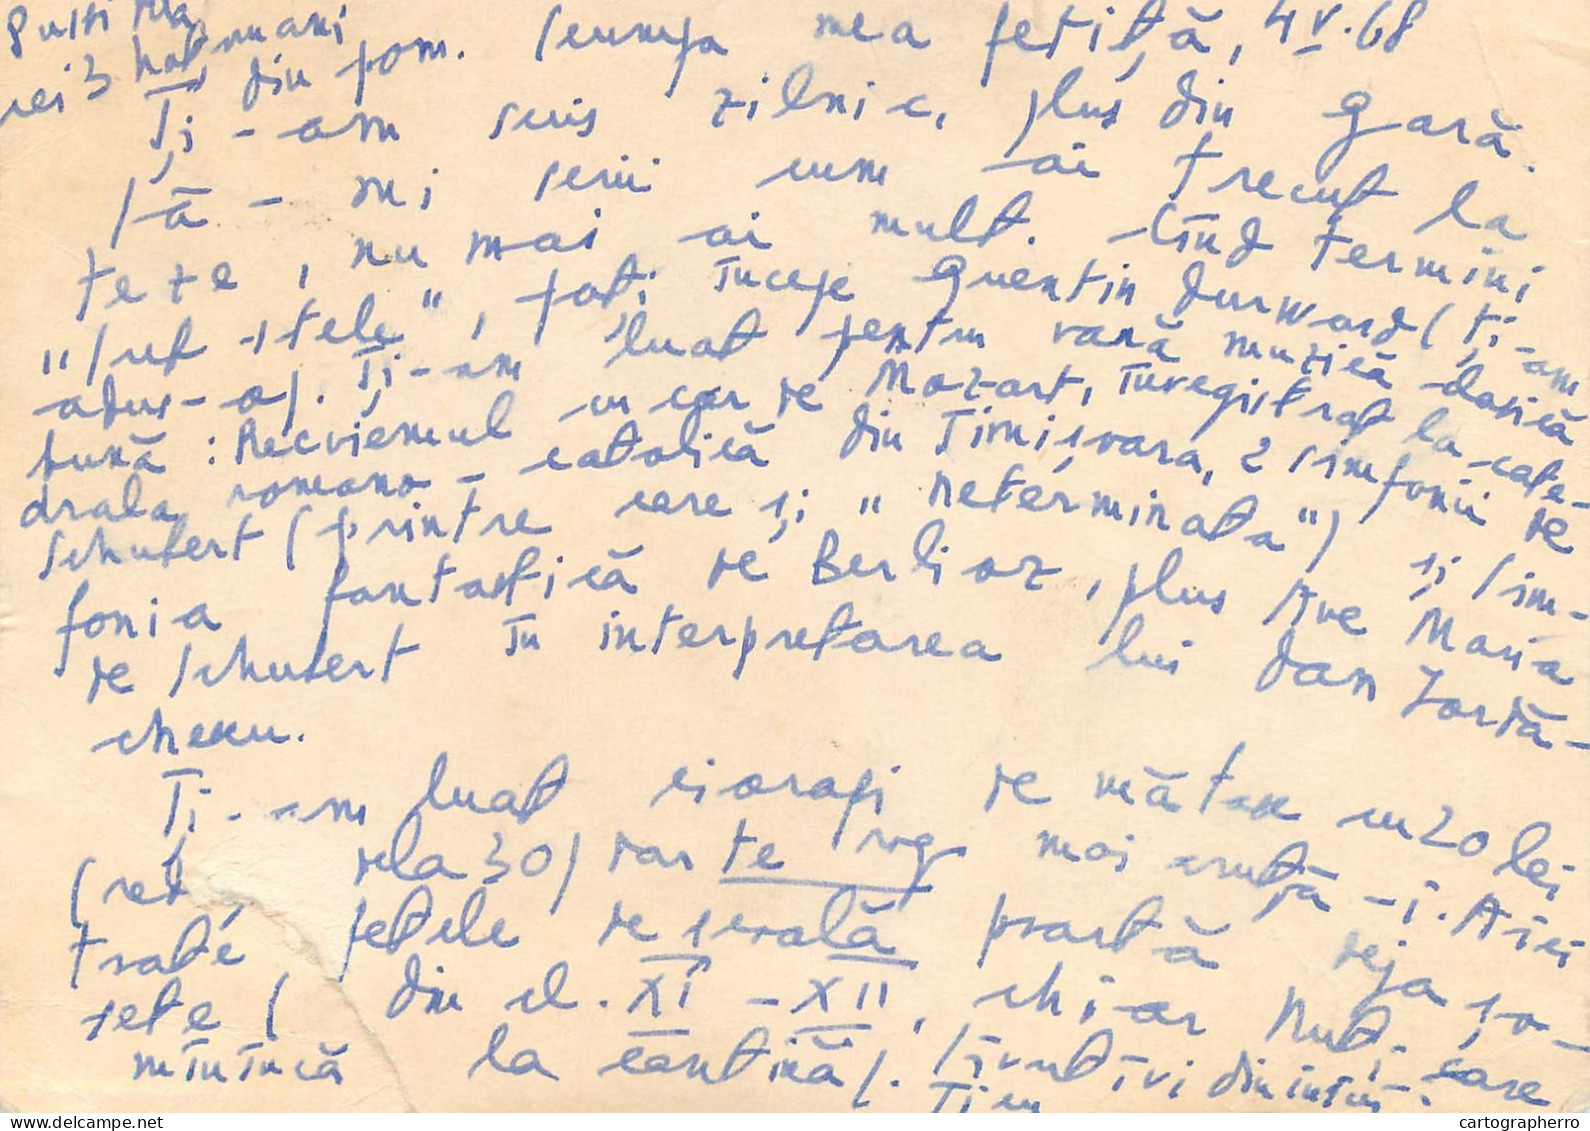 Scumpa mea fetiță, 4 V. 68
Ți-am scris zilnic, plus din gară.
Să-mi scrii cum ai trecut la
teze, nu mai ai mult. Cînd termini
"Sub stele", poți începe Quentin Durward (ți-am
adus-o). Ți-am luat pentru vară muzică clasică
bună: Recviemul cu cor de Mozart, înregistrat la cate-
drala romano-catolică din Timișoara, 2 simfonii de
Schubert (printre care și "Neterminata") și Sim-
fonia fantastică de Berlioz, plus Ave Maria
de Schubert în interpretarea lui Dan Iordă-
chescu.
Ți-am luat ciorapi de mătase cu 20 lei
(red dela 30) dar te rog mai cruță-i. Aici
toate fetele de școală poartă deja șo-
sete (din cl. XI-XII, chiar Nuți care
mînîncă la cantină).